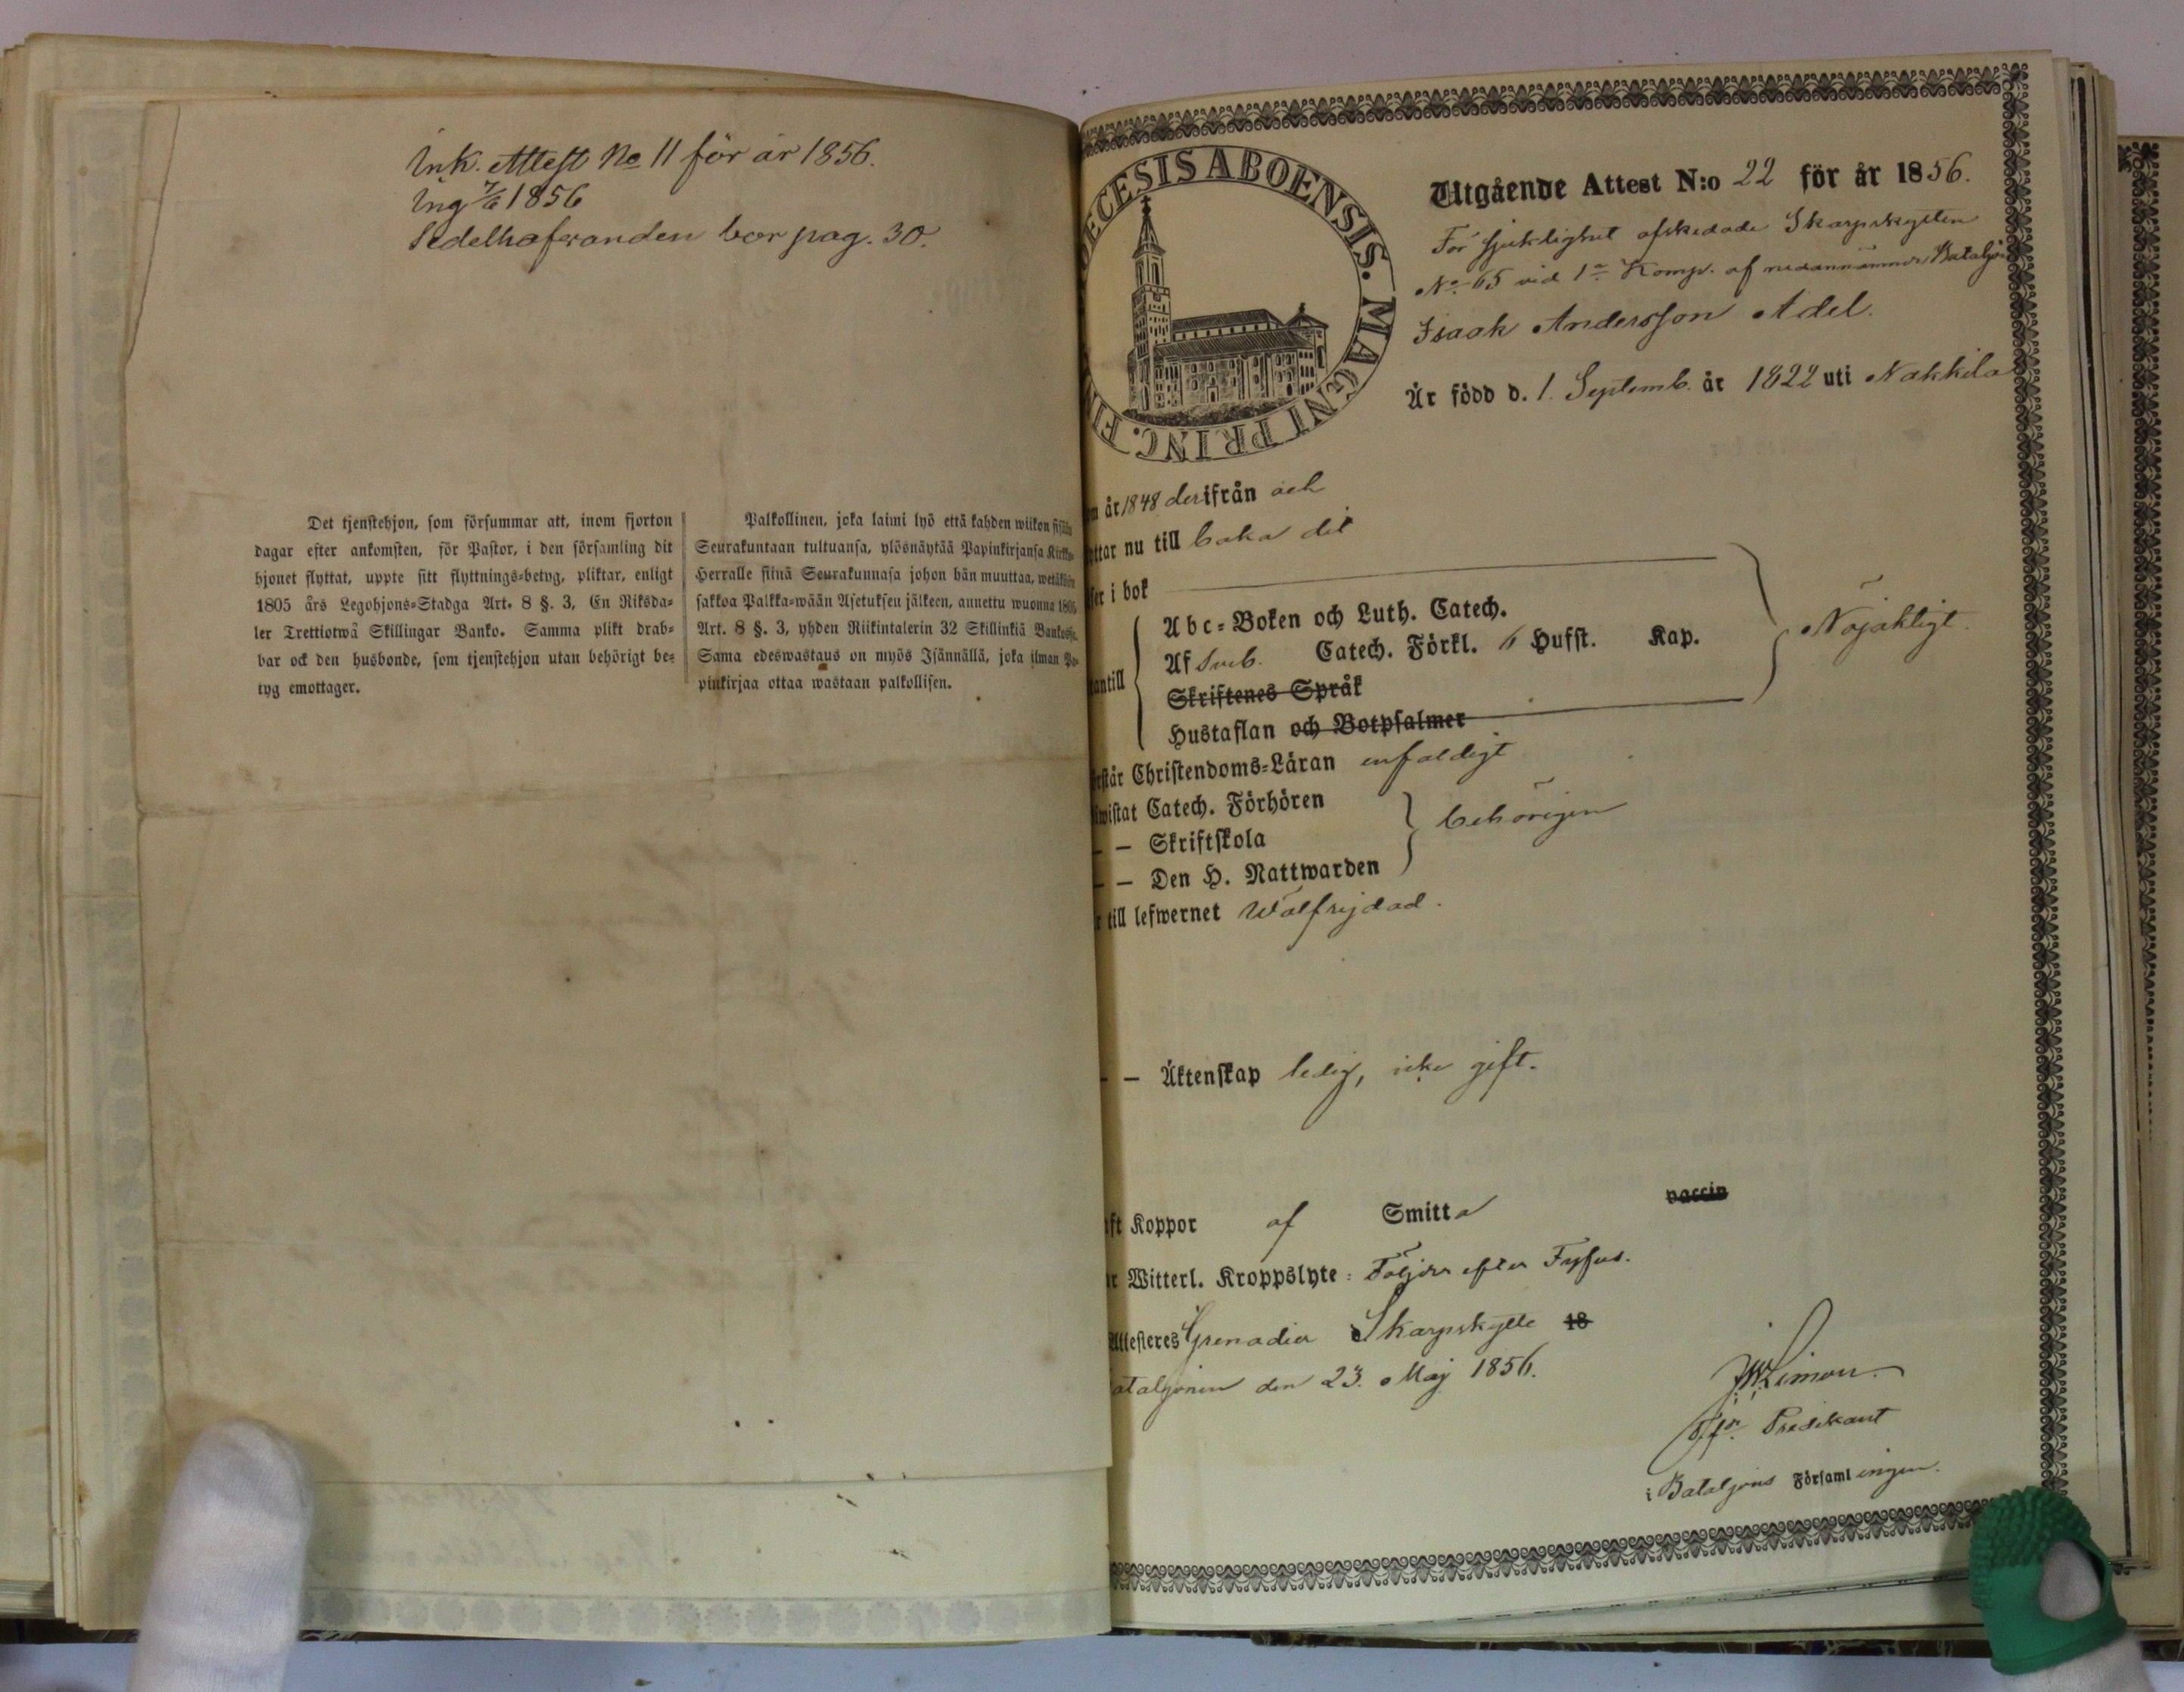 Ink. Attest No 11 för år 1856.
Ing 7/6 1856
Sedelhafvanden bor pag. 30.
Det tjenstehjon, som försummar att, inom fjorton
dagar efter ankomsten, för Pastor, i den församling dit
hjonet flyttat, uppte sitt flyttnings-betyg, pliktar, enligt
1805 års Legohjons-Stadga Art. 8 §. 3, En Riksda-
ler Trettiotwå Skillingar Banko. Samma plikt drab-
bar ock den husbonde, som tjenstehjon utan behörigt be-
tyg emottager.
Palkollinen, joka laimi lyö että kahden wiikon sisään
Seurakuntaan tultuansa, ylösnäytää Papinkirjansa Kirkko-
Herralle siinä Seurakunnasa johon hän muuttaa,
sakkoa Palkka-wään Asetuksen jälkeen, annettu wuonna 1805
Art. 8 §. 3, yhden Riikintalerin 32 Skillinkiä Bankossa.
Sama edeswastaus on myös Isännällä, joka ilman Pa-
pinkirjaa ottaa wastaan palkollisen.
DECESIS ABOENSIS. MAGNI PRINC. FIN
Utgående Attest N:o 22 för år 1856.
För sjuklighet afskedade Skarpskytten
No 65 vid 1a Komp. af nedannämnde Bataljon
Isaak Andersson Adel.
Är född d. 1. Septemb. år 1822 uti Nakkila
år 1848 derifrån och
nu till baka dit
i bok
Abc-Boken och Luth. Catech.
Af Sveb. Catech. Förkl. 6 Hufst. Kap.
antill
Nöjaktigt.
Skriftenes Språk
Hustaflan och Botpsalmer
Christendoms-Läran enfaldigt
wistat Catech. Förhören
— — Skriftskola
behörigen
— — Den H. Nattwarden
till lefwernet Wälfrejdad.
— — Äktenskap ledig, icke gift.
vaccin
ft Koppor af Smitta
Witterl. Kroppslyte: Följder efter Tyfus.
Attesteres Grenadier Skarpskytte 18
ataljonen den 23. Maj 1856.
Predikant
i Bataljons Församlingen.